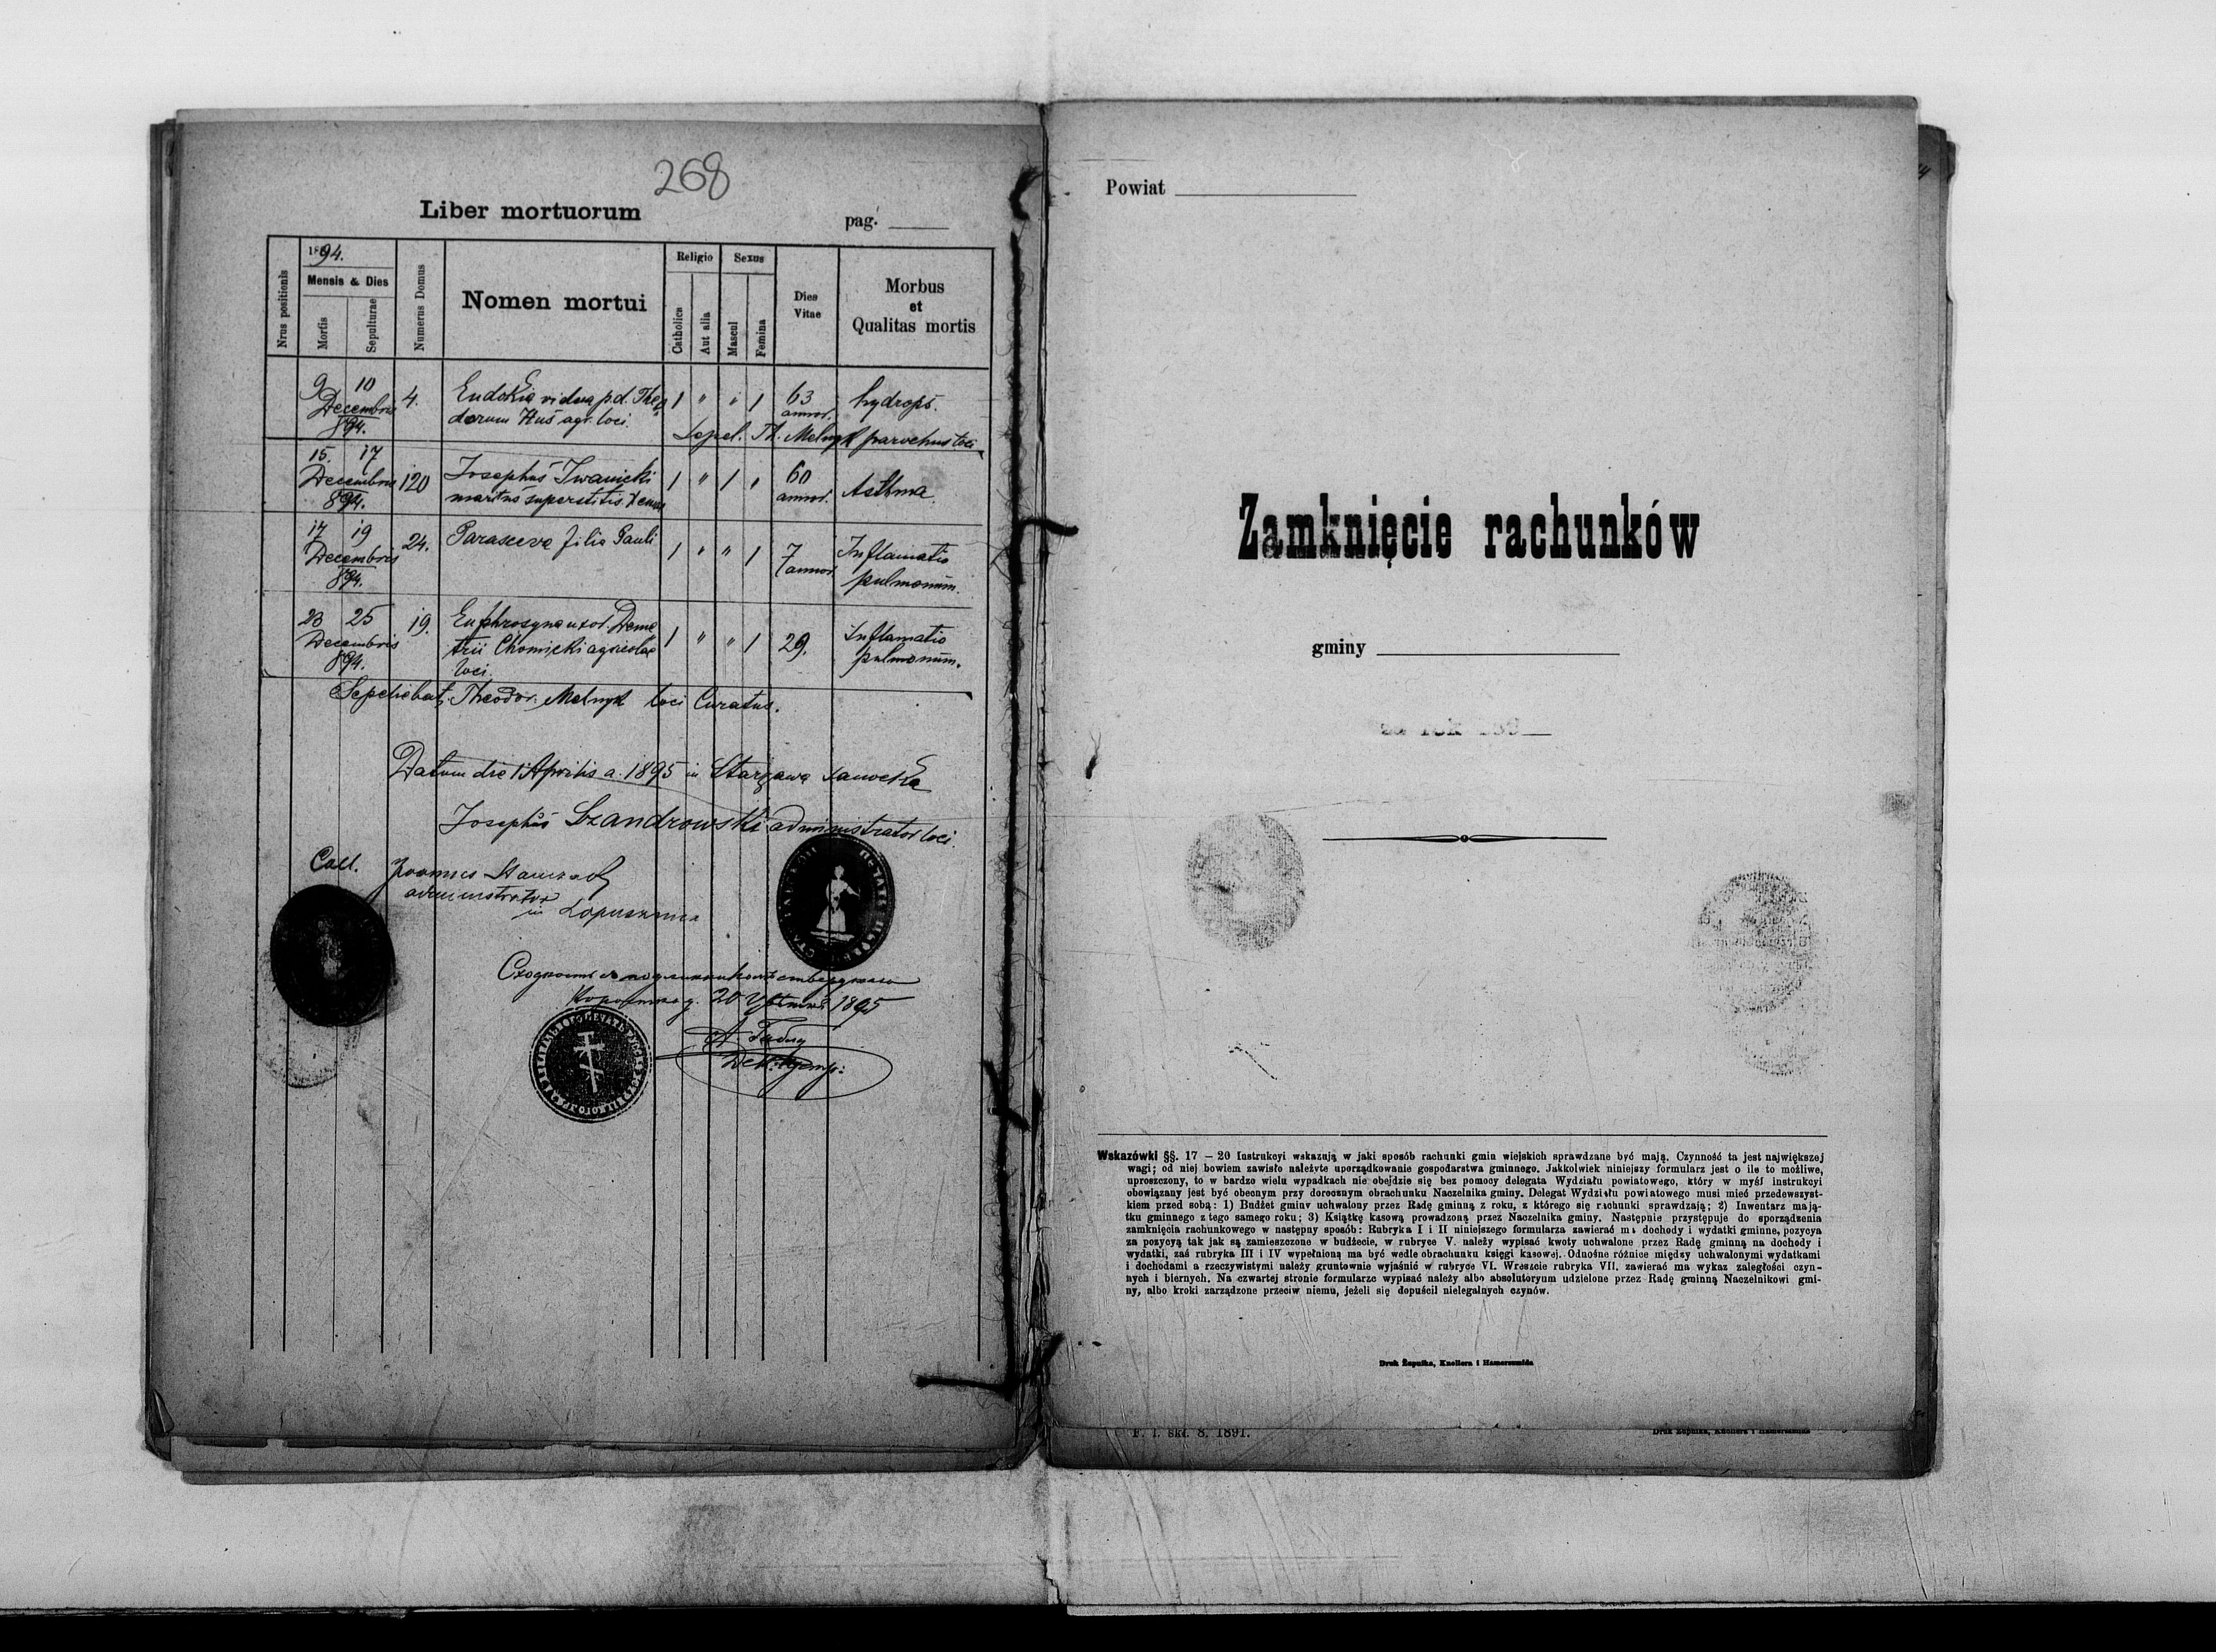 268
Liber mortuorum
pag.
Nrus positionis
1894.
Mensis & Dies
Mortis
Sepulturae
Numerus Domus
Nomen mortui
Religio
Catholica
Aut alia
Sexus
Mascul
Femina
Dies
Vitae
Morbus
et
Qualitas mortis
9 10 Decembris 894. 4. Eudokia vidua p.d. Theo
dorum Hus agr. loci. 1 " " 1 63 annor. hydrops.
Sepel. Th. Melnyk parochus loci
15. 17 Decembris 894. 120 Josephus Iwanicki
maritus superstitis 1 " 1 " 60 annor. Asthma.
17 19 Decembris 894. 24. Parasceva filia Pauli 1 " " 1 7 annor. Inflamatio
pulmonum.
23 25 Decembris 894. 19. Euphrosyna uxor. Deme
trii Chomicki agricolae
loci. 1 " " 1 29. Inflamatio
pulmonum.
Sepeliebat Theodor. Melnyk loci Curatus.
Datum die 1 Aprilis a. 1895 in Starzawa sanocka
Josephus Szandrowski administrator loci.
Coll. Joannes
administrator
in Lopuszanka
20 1895
Powiat
Zamknięcie rachunków
gminy
za rok 189
Wskazówki §§. 17 – 20 Instrukcyi wskazują w jaki sposób rachunki gmin wiejskich sprawdzane być mają. Czynność ta jest największej
wagi; od niej bowiem zawisło należyte uporządkowanie gospodarstwa gminnego. Jakkolwiek niniejszy formularz jest o ile to możliwe,
uproszczony, to w bardzo wielu wypadkach nie obejdzie się bez pomocy delegata Wydziału powiatowego, który w myśl instrukcyi
obowiązany jest być obecnym przy dorocznym obrachunku Naczelnika gminy. Delegat Wydziału powiatowego musi mieć przedewszyst-
kiem przed sobą: 1) Budżet gminy uchwalony przez Radę gminną z roku, z którego się rachunki sprawdzają; 2) Inwentarz mają-
tku gminnego z tego samego roku; 3) Książkę kasową prowadzoną przez Naczelnika gminy. Następnie przystępuje do sporządzenia
zamknięcia rachunkowego w następny sposób: Rubryka I i II niniejszego formularza zawierać ma dochody i wydatki gminne, pozycya
za pozycyą tak jak są zamieszczone w budżecie, w rubryce V. należy wypisać kwoty uchwalone przez Radę gminną na dochody i
wydatki, zaś rubryka III i IV wypełnioną ma być wedle obrachunku księgi kasowej. Odnośne różnice między uchwalonymi wydatkami
i dochodami a rzeczywistymi należy gruntownie wyjaśnić w rubryce VI. Wreszcie rubryka VII. zawierać ma wykaz zaległości czyn-
nych i biernych. Na czwartej stronie formularze wypisać należy albo absolutoryum udzielone przez Radę gminną Naczelnikowi gmi-
ny, albo kroki zarządzone przeciw niemu, jeżeli się dopuścił nielegalnych czynów.
Druk Żupnika, Knollera i Hamerszmida
F. 1. skł. 8. 1891.
Druk Żupnika, Knollera i Hamerszmida